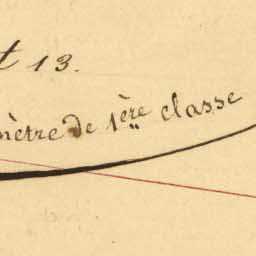 t 13.
mètre de 1ère classe